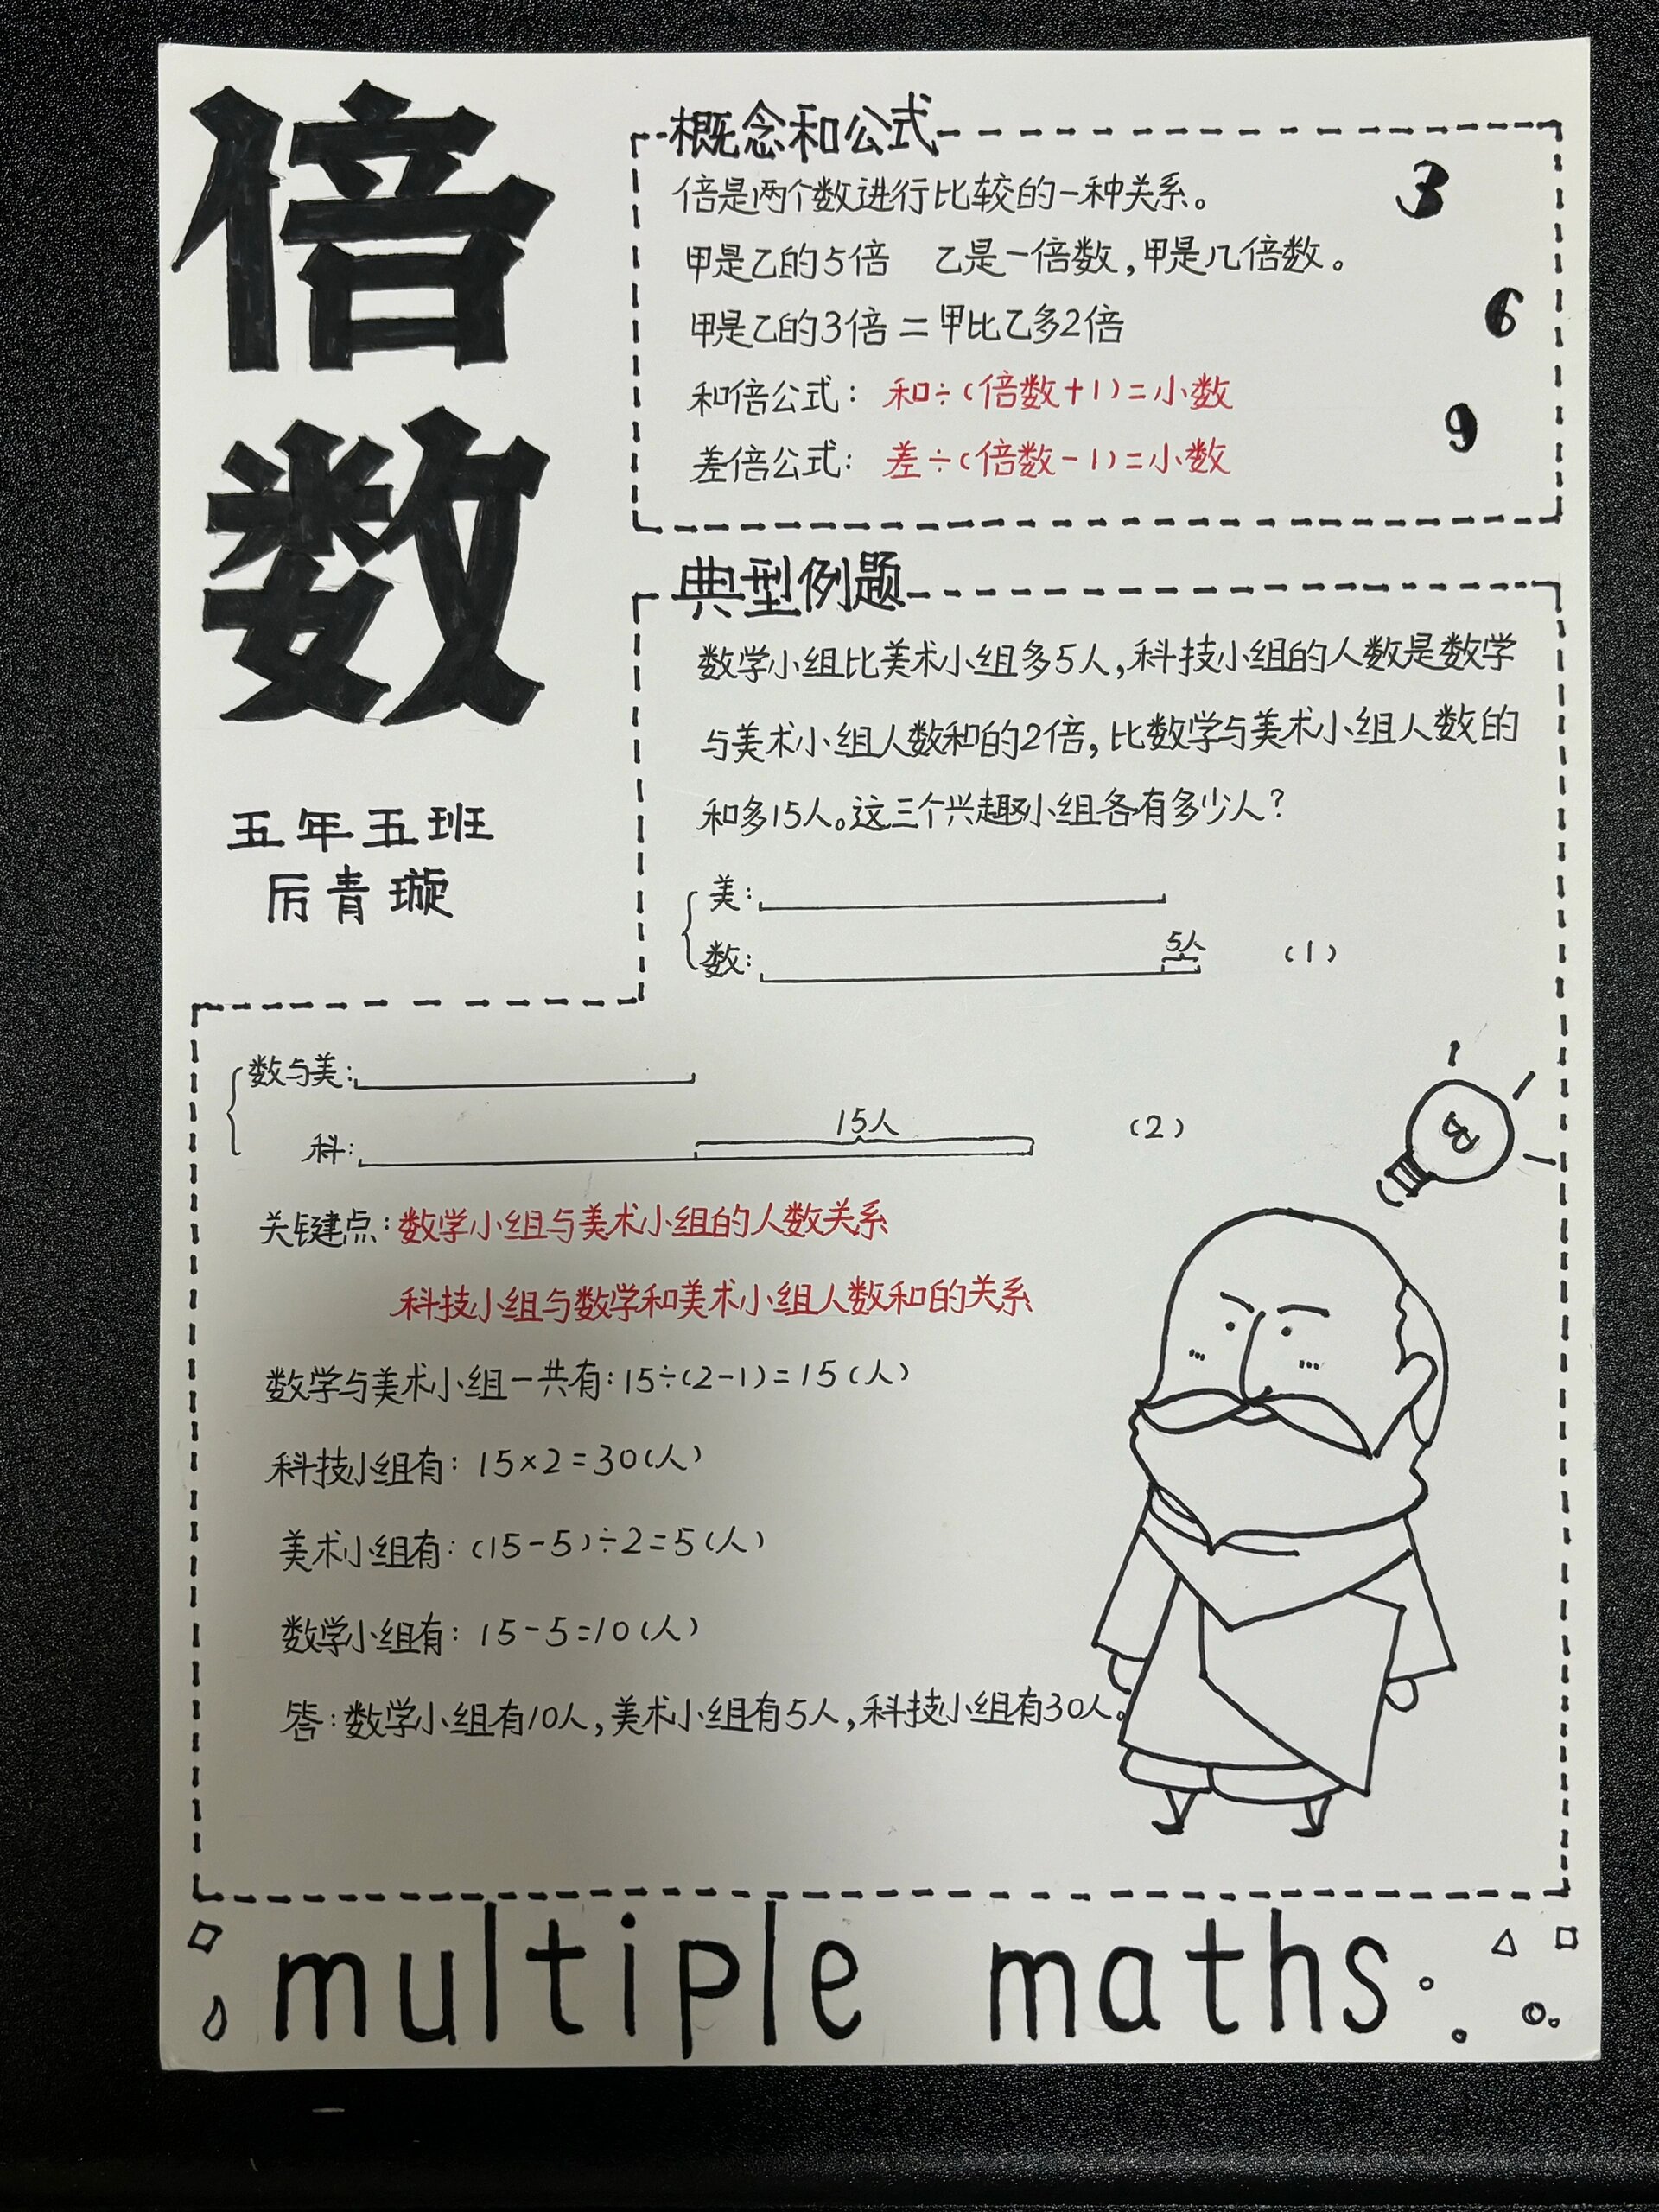 倍数
五年五班
厉青璇
概念和公式
倍是两个数进行比较的一种关系。
甲是乙的5倍 乙是一倍数,甲是几倍数。
甲是乙的3倍=甲比乙多2倍
和倍公式: 和÷(倍数+1)=小数
差倍公式: 差÷(倍数-1)=小数
3
6
9
典型例题
数学小组比美术小组多5人,科技小组的人数是数学
与美术小组人数和的2倍,比数学与美术小组人数的
和多15人。这三个兴趣小组各有多少人?
美:
数: 5人 (1)
数与美:
科: 15人 (2)
关键点:数学小组与美术小组的人数关系
科技小组与数学和美术小组人数和的关系
数学与美术小组一共有:15÷(2-1)=15(人)
科技小组有: 15×2=30(人)
美术小组有: (15-5)÷2=5(人)
数学小组有: 15-5=10(人)
答:数学小组有10人,美术小组有5人,科技小组有30人。
multiple maths